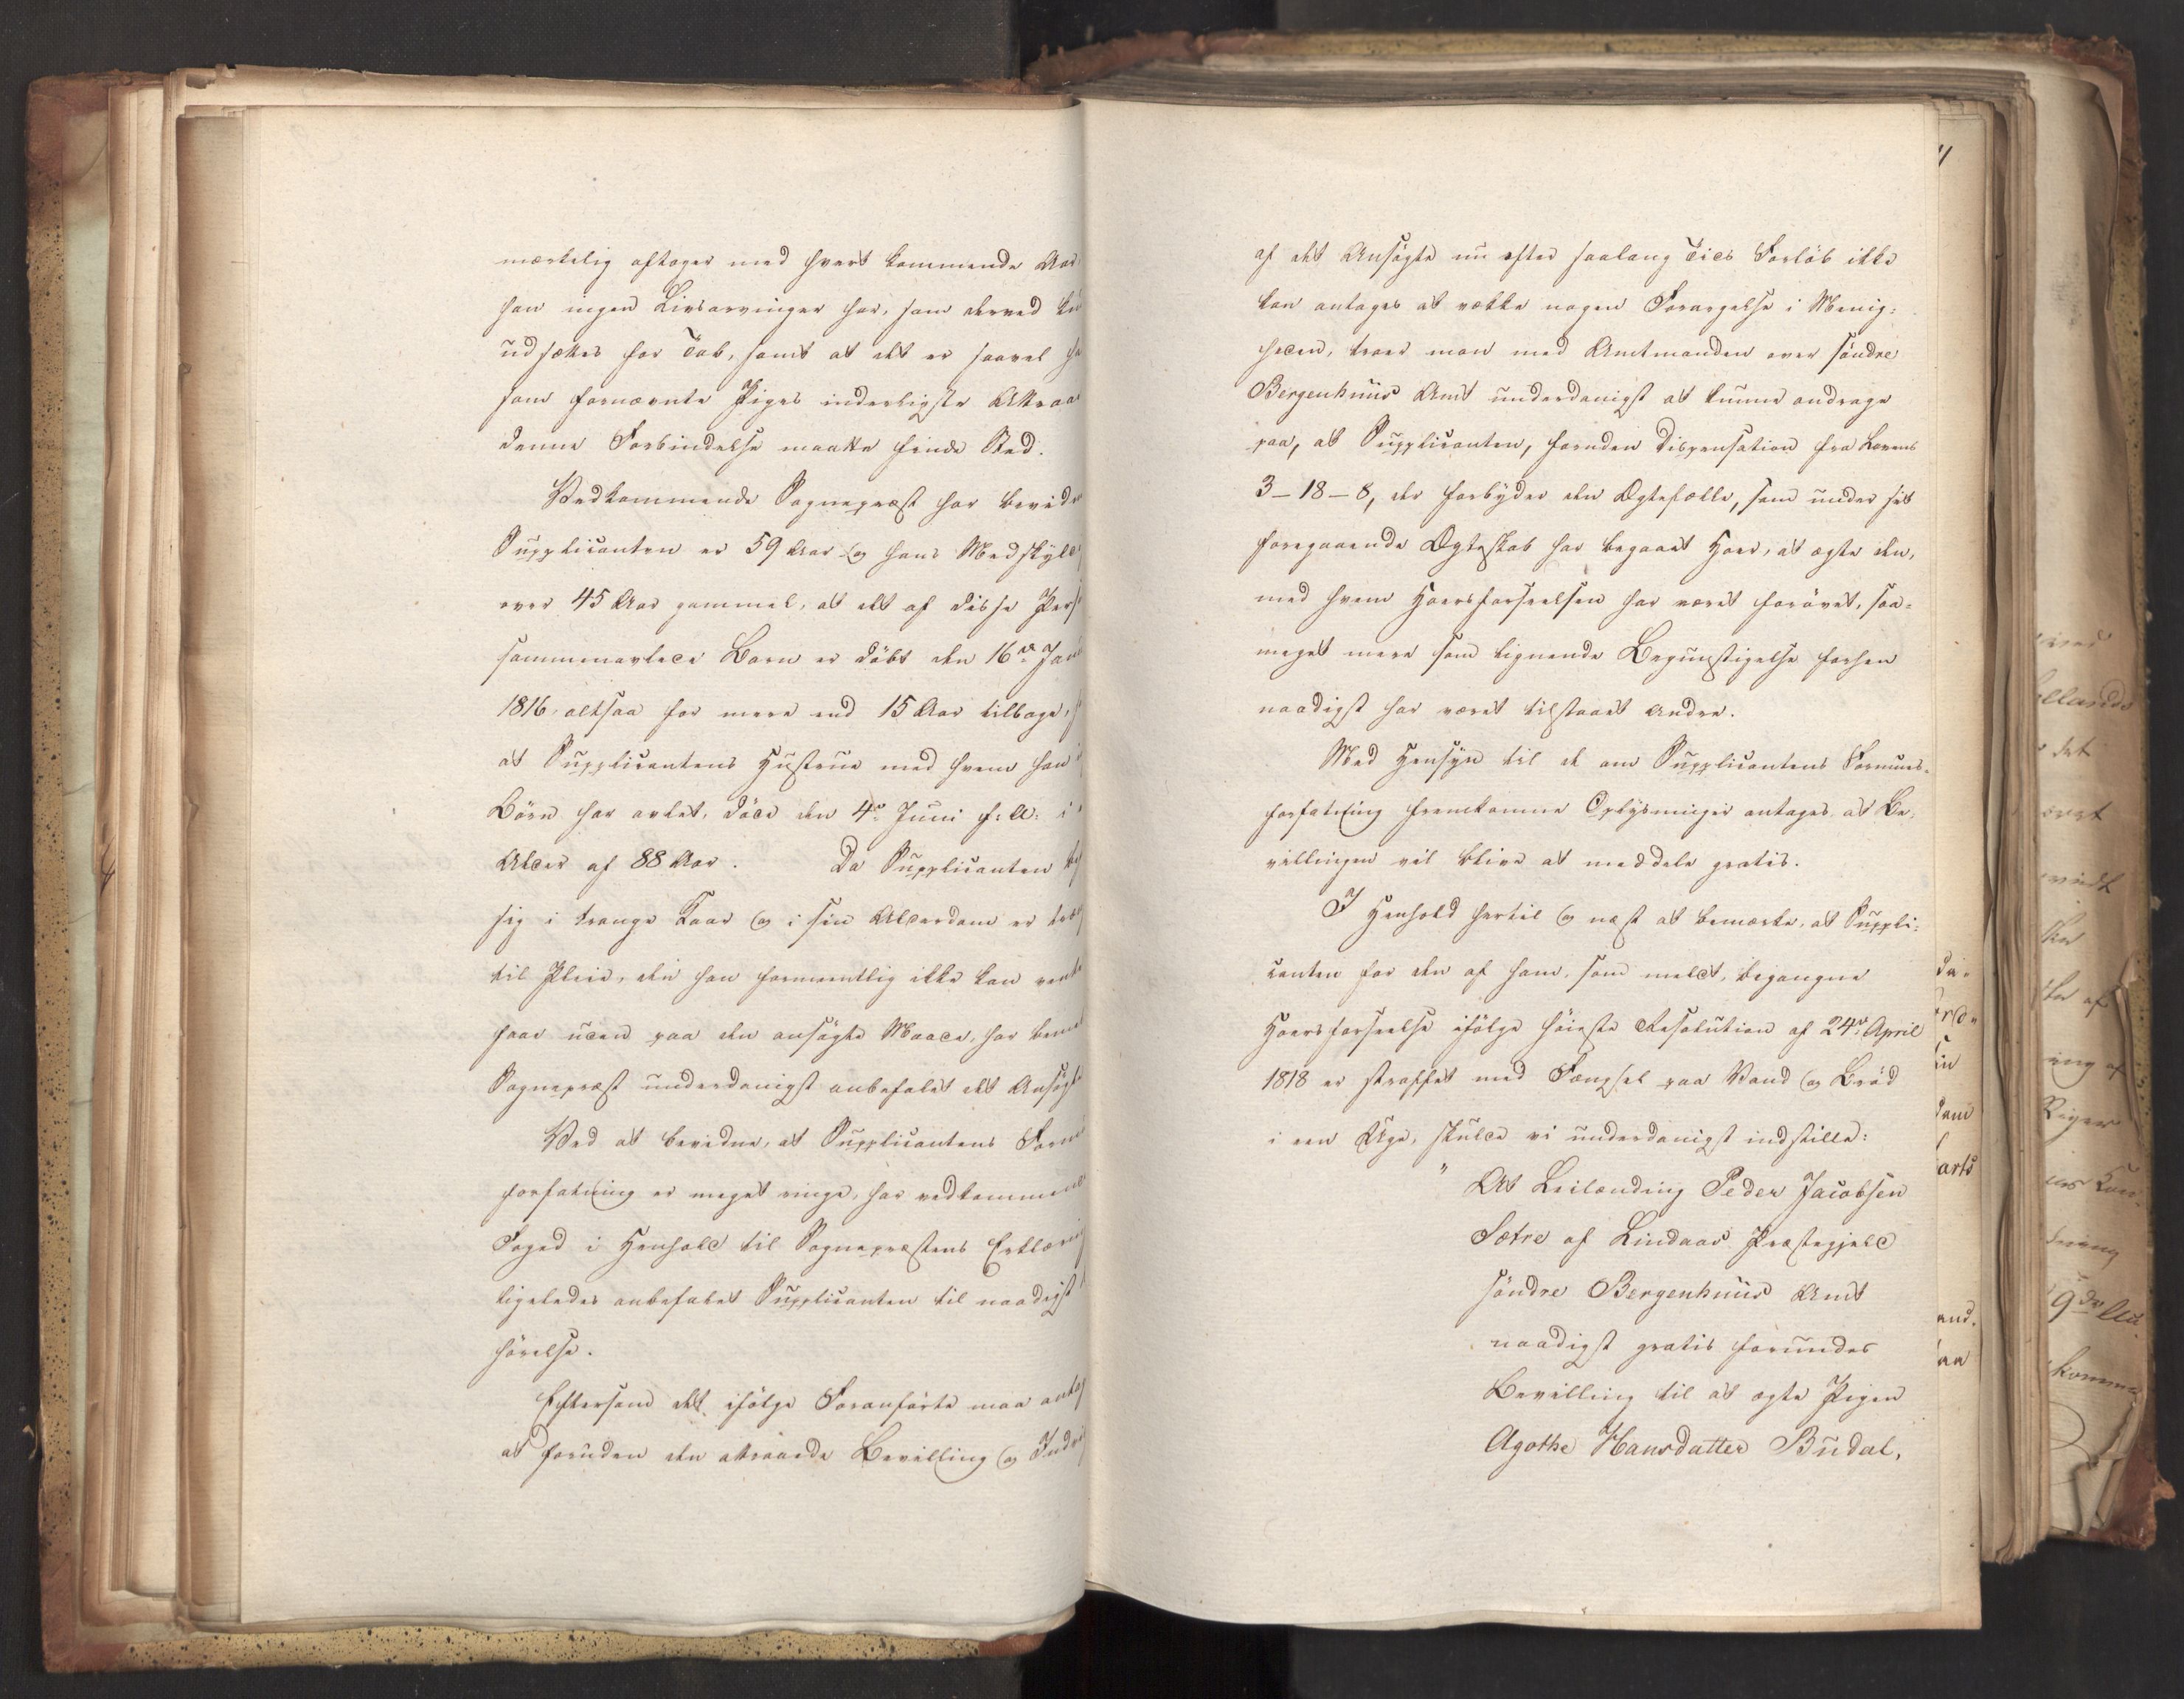 mærkelig aftager med hvert kommende Aar,
han ingen Livsarvinger har, som derved
udsættes for Tab, samt at det er saavel
som fornævnte Piges inderligste Attraa
denne Forbindelse maatte finde Sted.
Vedkommende Sognepræst har bevidn
Supplicanten er 59 Aar og hans Medskyld
over 45 Aar gammel, at det af disse Pers
sammenavlede Barn er döbt den 16de Jan
1816, altsaa for mere end 15 Aar tilbage,
at Supplicantens Hustrue med hvem han
Börn har avlet, döde den 4de Juni f: A: i
Alder af 88 Aar. Da Supplicanten
sig i trange Kaar og i sin Alderdom er
til Pleie, den han formeentlig ikke kan vente
faae uden paa den ansögte Maade, har
Sognepræst underdanigst anbefalet det Ansögte
Ved at bevidne, at Supplicantens
forfatning er meget ringe, har vedkommende
Foged i Henhold til Sognepræstens Erklæring
ligeledes anbefalet Supplicanten til naadigst
hörelse.
Eftersom det ifölge Foranförte maa antag
at foruden den attraaede Bevilling og
af det Ansögte nu efter saalang Tids Forlöb ikke
kan antages at vække nogen Forargelse i Menig-
heden, troer man med Amtmanden over söndre
Bergenhuus Amt underdanigst at kunne andrage
paa, at Supplicanten, foruden Dispensation fra Lovens
3-18-8, der forbyder den Ægtefælle, som under sit
foregaaende Ægteskab har begaaet Hoer, at ægte den,
med hvem Hoersforseelsen har været forövet, saa-
meget mere som lignende Begunstigelse forhen
naadigst har været tilstaaet Andre.
Med Hensyn til de om Supplicantens Formues-
forfatning fremkomne Oplysninger antages, at Be-
villingen vil blive at meddele gratis.
I Henhold hertil og næst at bemærke, at Suppli-
canten for den af ham, som meldt, begangne
Hoersforseelse ifölge höieste Resolution af 24de April
1818 er straffet med Fængsel paa Vand og Bröd
i een Uge, skulde vi underdanigst indstille:
" At Leilænding Peder Jacobsen
Sætre af Lindaas Præstegjeld
söndre Bergenhuus Amt
naadigst gratis forundes
Bevilling til at ægte Pigen
Agothe Hansdatter Budal,